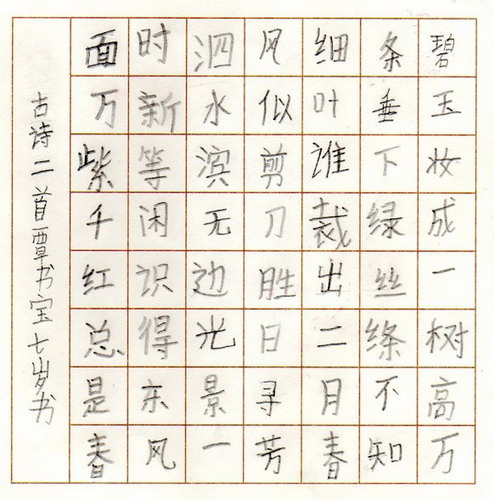 碧玉妆成一树高万
条垂下绿丝绦不知
细叶谁裁出二月春
风似剪刀胜日寻芳
泗水滨无边光景一
时新等闲识得东风
面万紫千红总是春
古诗二首覃书宝七岁书